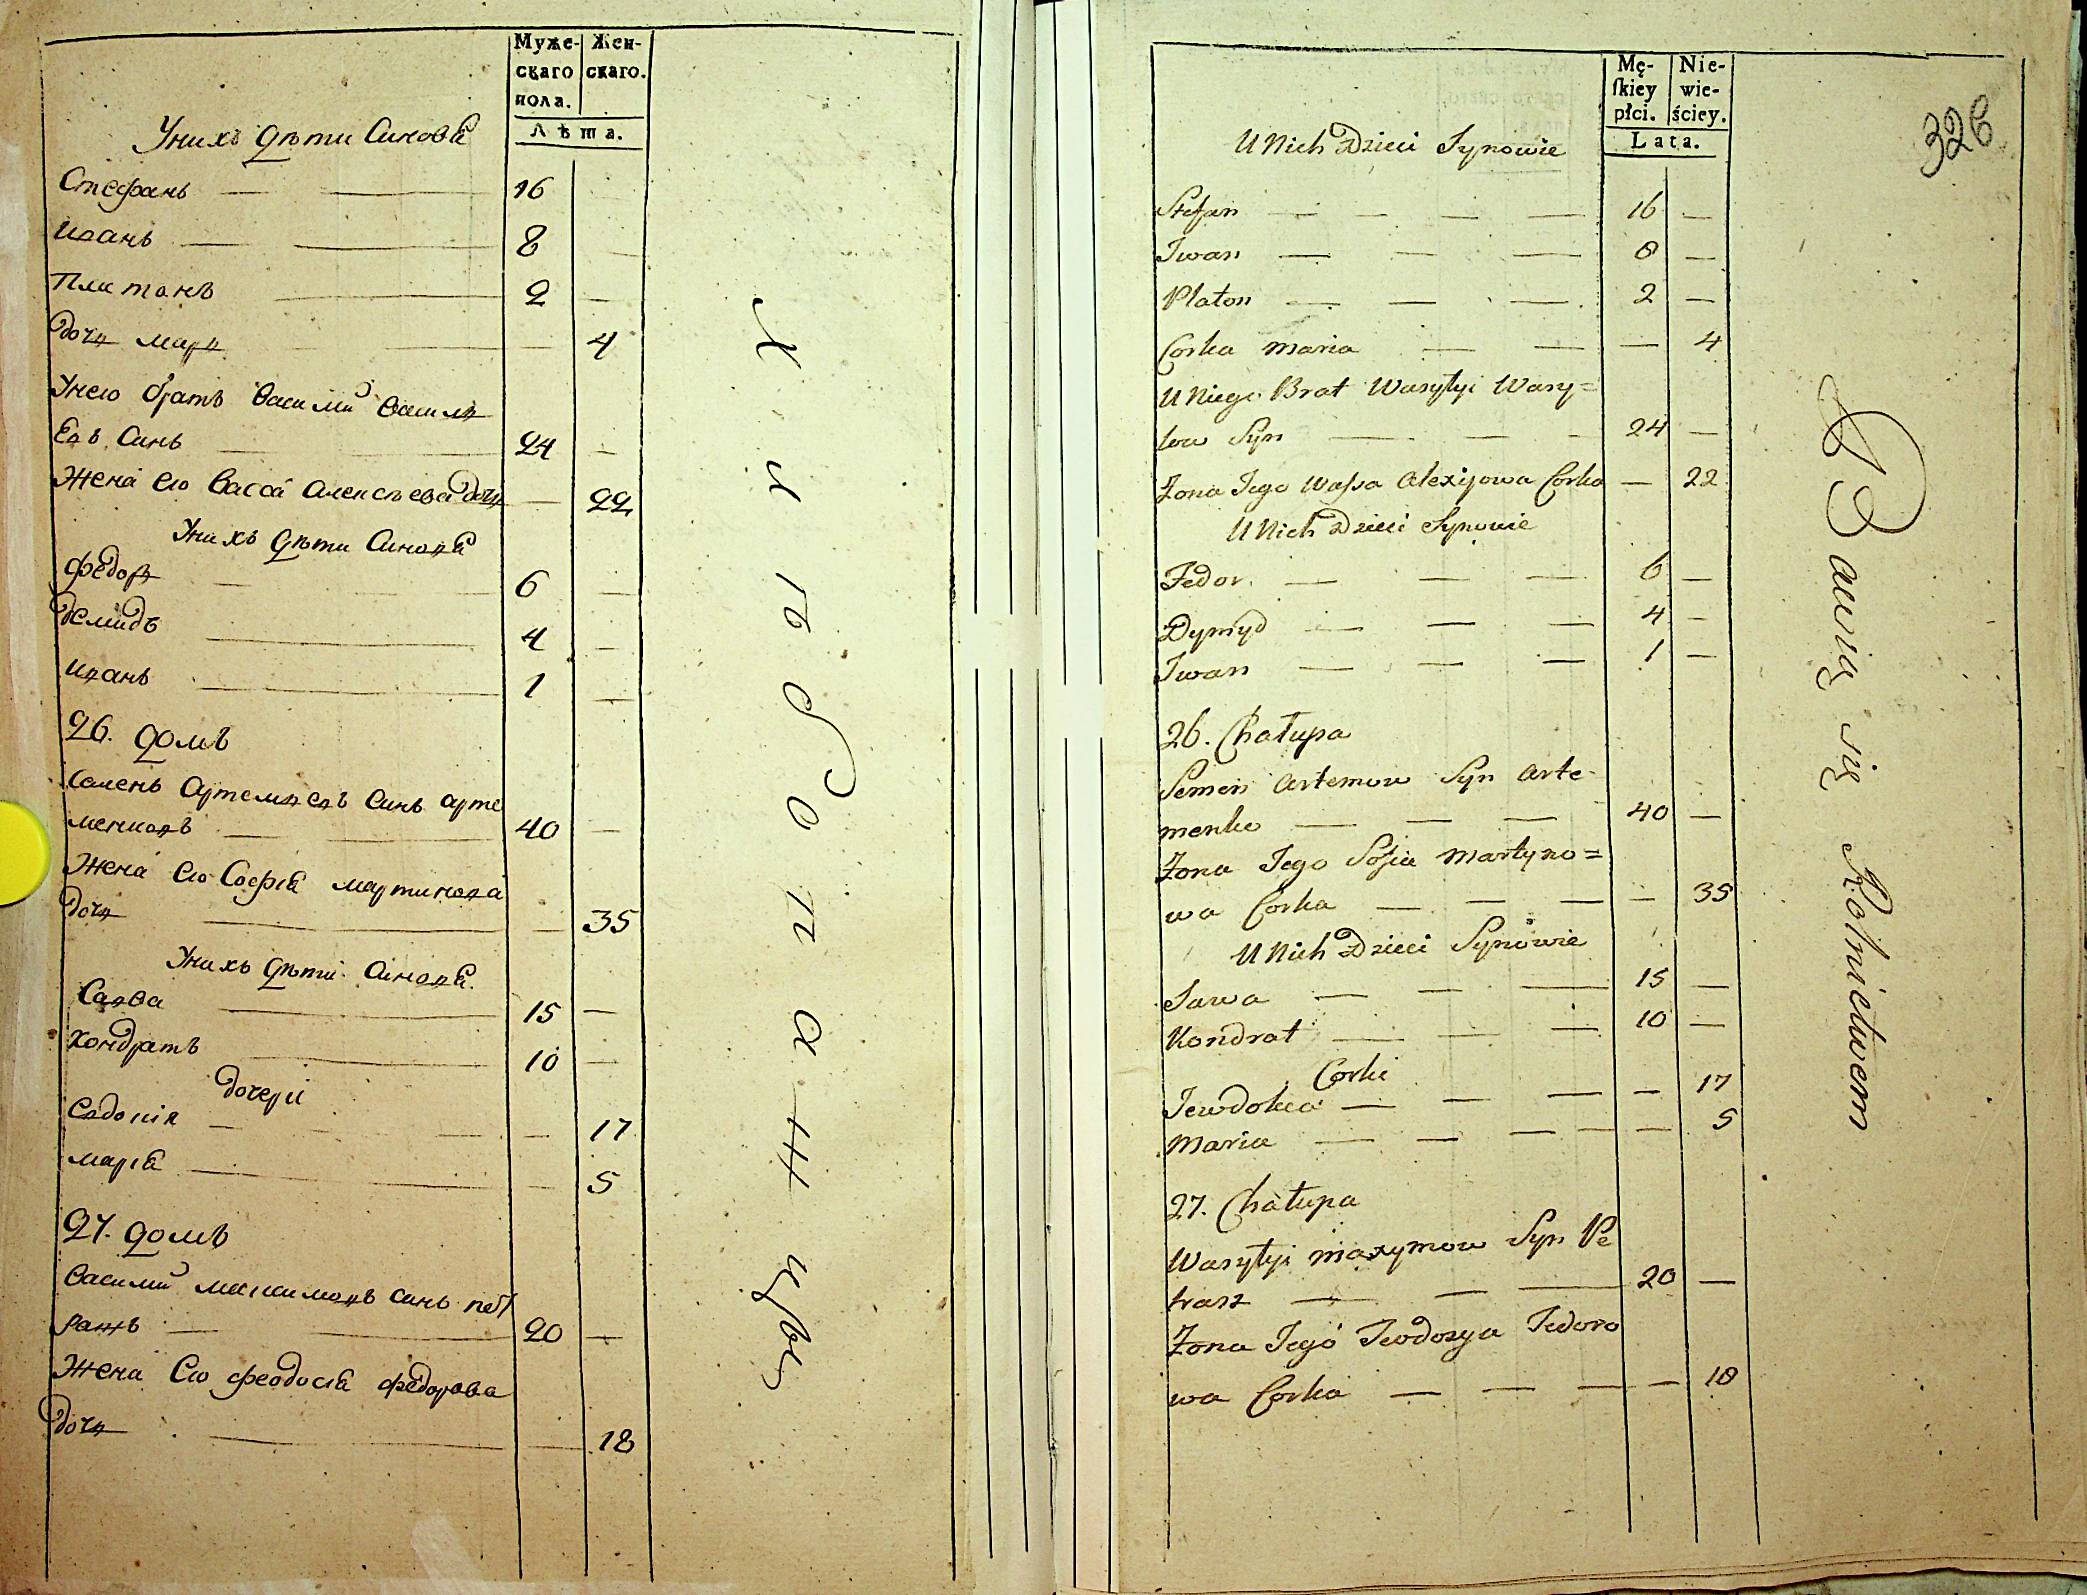 Муже-
скаго
пола.
Жен-
скаго.
Лѣта.
Унихъ дѣти Синовѣ
Стефанъ — — 16
Иванъ — — 8 —
Платонъ — 2 —
дочь мария — — 4
Унего братъ Василий Василь
евъ Синъ — — 24 —
Жена его Васса Алексѣева дочь — 22
Унихъ дѣти Синовѣ
федоръ — — 6 —
демидъ — 4 —
иванъ — 1 —
26. домъ
Семенъ Артемьевъ Синъ арте
менковъ — — 40 —
Жена его Софіа мартинова
дочь — — 35
Унихъ дѣти Синовѣ
Савва — 15 —
Кондратъ — 10 —
дочери
Евдокія — — — 17
маріа — — 5
27. домъ
Василий максимовъ синъ пет
рашъ — — 20 —
Жена его феодосіа федорова
дочь — — 18
Хлѣбопашцы
Mę-
ſkiey
płci.
Nie-
wie-
ściey.
Lata.
326
U Nich Dzieci Synowie
Stefan — — — — 16 —
Iwan — — — 8 —
Platon — — — 2 —
Corka Maria — — — 4
U Niego Brat Wasyłyi Wasy=
low Syn — — — 24 —
Zona Iego Waſsa Alexijowa Corka — 22
U Nich Dzieci Synowie
Fedor — — — 6 —
Dymyd — — — 4 —
Iwan — — — 1 —
26. Chałupa
Semen Artemow Syn Arte-
menko — — — 40 —
Zona Iego Sofia Martyno=
wa Corka — — — — 35
U Nich Dzieci Synowie
Sawa — — — 15 —
Kondrat — — — 10 —
Corki
Iewdokia — — — — 17
Maria — — — — — 5
27. Chałupa
Wasyłyi Maxymow Syn Pe
trasz — — — 20 —
Zona Iego Teodosya Fedoro
wa Corka — — — — 18
Bawią się Rolnictwem